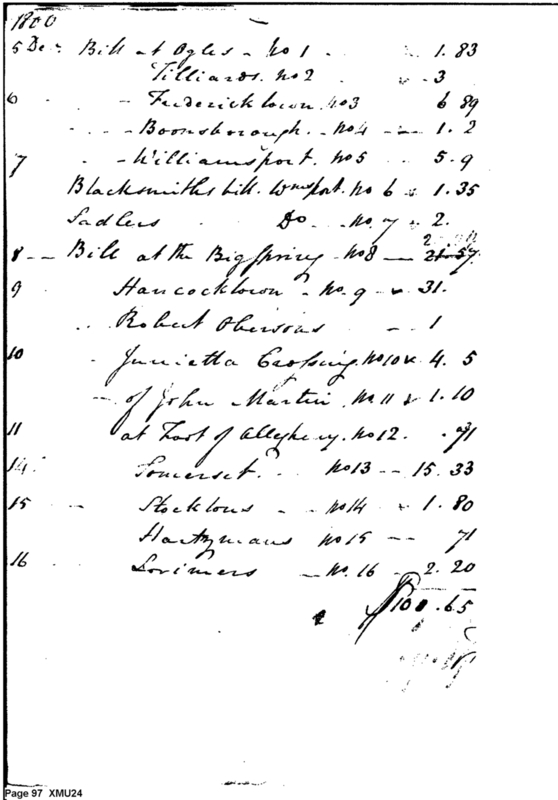 1800
5 Dec Bill at Ogles - No 1 1.83
Tilliards. No 2 3
6 - Fredericktown No 3 6 89
- Boonsborough - No 4 - 1.2
7 - Williamsport. No 5 5.9
Blacksmiths bill. Wmsport. No 6 1.35
Sadlers Do No. 7 2.
8 - Bill at the Big Spring - No 8 - 57
9 Hancocktown - No. 9 31.
Robert - 1
10 - Juniatta Crossing No 10 & 4.5
- of John Martin No 11 & 1.10
11 at Foot of Allegheny. No 12. .71
14 Somerset. No 13 - 15.33
15 - Stocktons - No 14 1.80
No 15 - 71
16 Lorimers - No. 16 - 2.20
$100.65
Page 97 XMU24